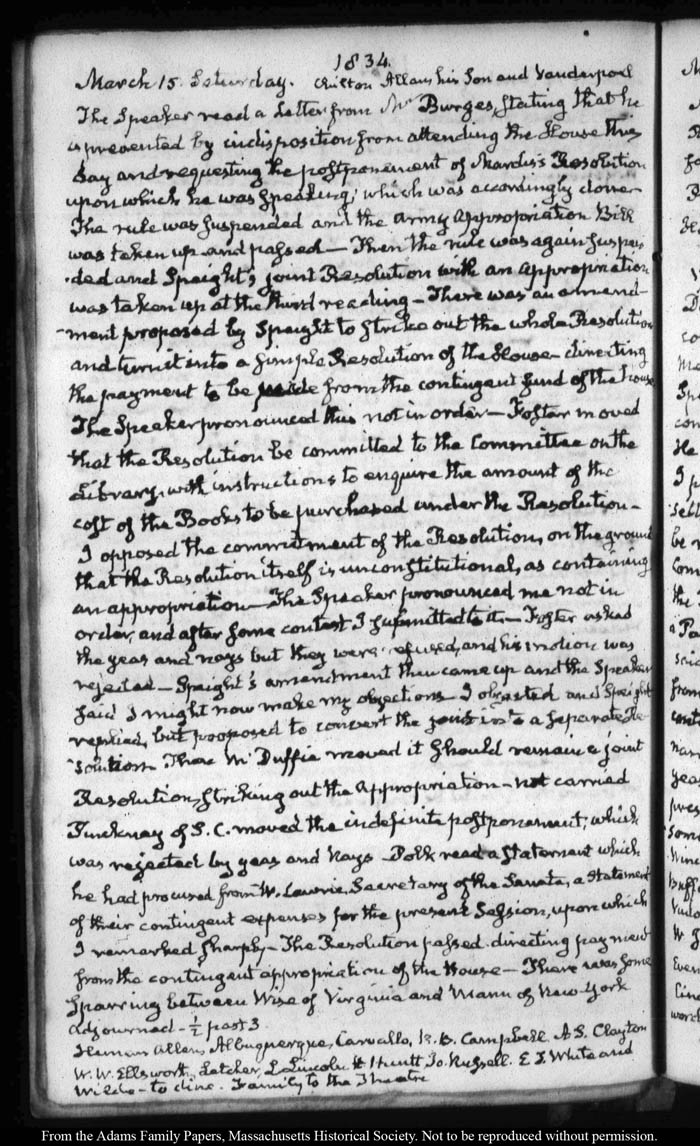 1834.
March 15. Saturday. Chilton Allan, his Son and Vanderpoel
The Speaker read a Letter from Mr Burges, stating that he
is prevented by indisposition from attending the House this
day and requesting the postponement of Mardis's Resolution
upon which he was speaking; which was accordingly done.
The rule was suspended and the Army Appropriation Bill
was taken up and passed— Then the rule was again suspen-
-ded and Speight's joint Resolution with an appropriation
was taken up at the third reading— There was an amend-
-ment proposed by Speight to strike out the whole Resolution
and turn it into a simple Resolution of the House— directing
the payment to be made from the contingent fund of the house
The Speaker pronounced this not in order— Foster moved
that the Resolution be committed to the Committee on the
Library, with instructions to enquire the amount of the
cost of the Books to be purchased under the Resolution—
I opposed the commitment of the Resolution, on the ground
that the Resolution itself is unconstitutional, as containing
an appropriation— The Speaker pronounced me not in
order, and after some contest I submitted to it— Foster asked
the yeas and nays but they were refused, and his motion was
rejected— Speight's amendment then came up and the Speaker
said I might now make my objections— I objected and Speight
replied, but proposed to convert the joint into a separate Re-
-solution. Then McDuffie moved it should remain a joint
Resolution, striking out the Appropriation— not carried
Pinckney of S.C. moved the indefinite postponement; which
was rejected by yeas and nays— Polk read a statement which
he had procured from W. Lowrie, Secretary of the Senate, a statement
of their contingent expenses for the present Session, upon which
I remarked sharply— The Resolution passed directing payment
from the contingent appropriation of the House— There was some
sparring between Wise of Virginia and Mann of New-York
Adjourned— ½ past 3.
Heman Allen, Albuquerque, Carvallo, R. B. Campbell. A S. Clayton
W. W. Ellsworth, Letcher, L Lincoln Huntt Jo. Russell. E. D. White and
Wilde— to dine. Family to the Theatre
From the Adams Family Papers, Massachusetts Historical Society. Not to be reproduced without permission.